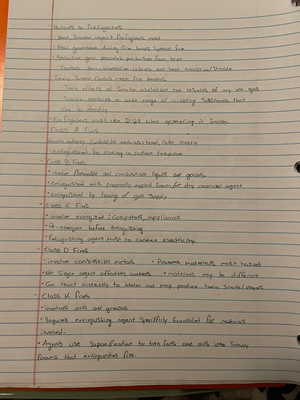 Hazards to firefighters
- Heat, Smoke impact firefighters most
- Heat generated during fire helps Spread fire
- Protective gear provides protection from heat
- Toxic Smoke causes most fire deaths
- Toxic effects of Smoke inhalation the results of any one gas
- Smoke contains a wide range of irritating Substances that
can be deadly
- Firefighters must use SCBA when operating in Smoke
- Class A Fires
- extinguished by cooling to reduce temperature
Class B Fires
• involve flammable and combustible liquids and gasses.
• extinguished with properly applied foam or dry chemical agent
• extinguished by turning off gas supply
- Class C Fires
• involve energized: Computers, appliances
• de-energize before extinguishing
• Extinguishing agents must no conduct electricity
- Class D Fires
• involve combustible metals • Powdered materials most hazard
• No Single agent effectively controls • materials may be difference
• Can react violently to water and may produce toxic smoke/vapors
- Class K Fires
• involves oils and greases
• Requires extinguishing agent Specifically formulated for materials
involved.
• Agents use Saponification to turn fats and oils into Soapy
foams that extinguishes fire.